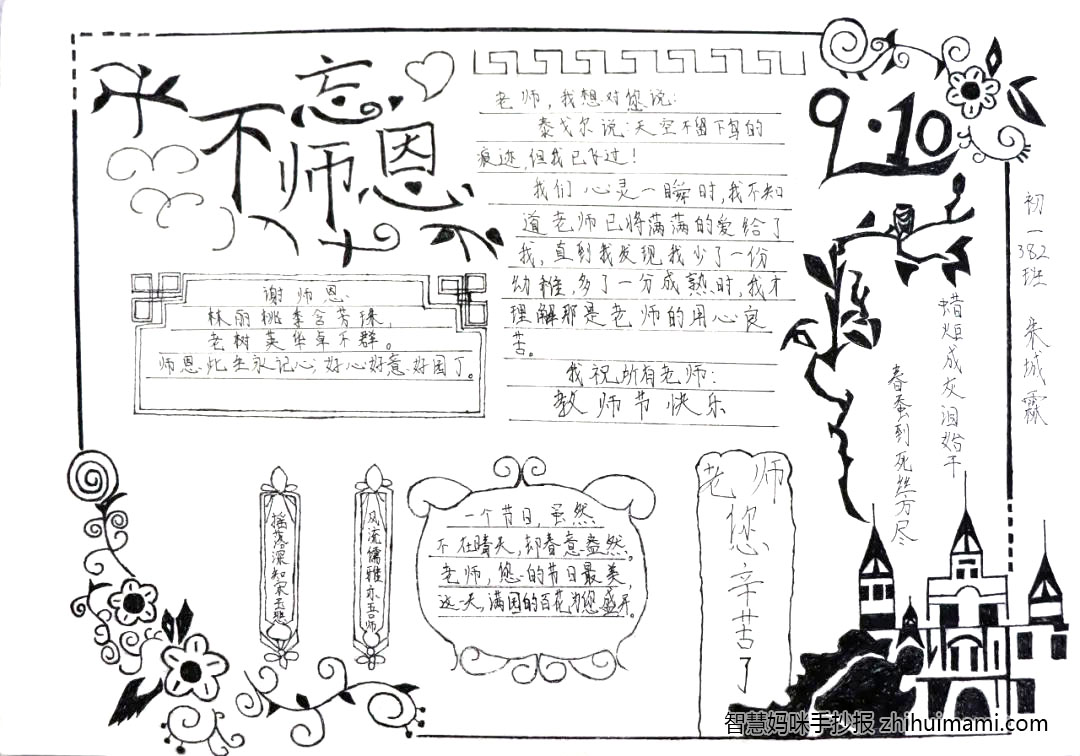 不忘师恩
9·10
老师,我想对您说:
泰戈尔说:天空不留下鸟的
痕迹,但我已飞过!
我们心灵一瞬时,我不知
道老师已将满满的爱给了
我,直到我发现我少了一份
幼稚,多了一分成熟时,我才
理解那是老师的用心良
苦。
我祝所有老师:
教师节快乐
谢师恩
林丽桃李含芳臻,
老树英华卓不群。
师恩此生永记心,好心好意好园丁。
摇落深知宋玉悲
风流儒雅亦吾师
一个节日,虽然
不在晴天,却春意盎然。
老师,您的节日最美,
这一天,满园的百花为您盛开。
老师
您辛苦了
春蚕到死丝方尽
蜡炬成灰泪始干
初一382班 朱城霖
智慧妈咪手抄报 zhihuimami.com